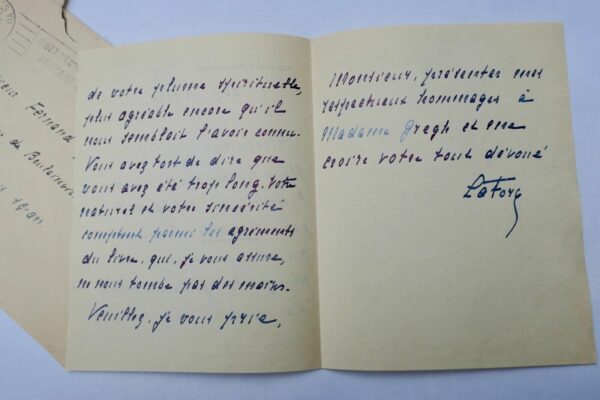 de votre plume spirituelle,
plus agréable encore qu'il
nous semblait l'avoir connu.
Vous avez tort de dire que
vous avez été trop long. Votre
naturel et votre sincérité
comptent parmi les agréments
du livre, qui, je vous assure,
ne nous tombe pas des mains.
Veuillez, je vous prie,
Monsieur, présenter mes
respectueux hommages à
Madame Gregh et me
croire votre tout dévoué
La Force
Fernand
de Boulainv